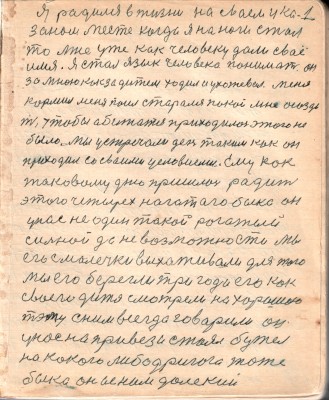 Я радился в жизни на своем ука- 1
заном месте когда я на ноги стал
то мне уже как человеку дали своё
имя. Я стал язык человека понимать он
за мною как за дитем ходил и ухожевал. меня
кормил меня поил старался покой мне
чтобы а бежатся приходилося этого не
было. Мы устрегали день таким как он
приходил со своими условиеми. Ему как
таковому дню пришлося радить
этого четырех нагатаго быка он
у нас не один такой рогатый
сильной до невозможности мы
его смалечка выхаживали для того
мы его берегли три года его как
своего дитя смотрели на хорошого
с ним всегда говарили он
у нас на привези стоял бужел
на кокого либо другога тоже
быка он ыхним далекий